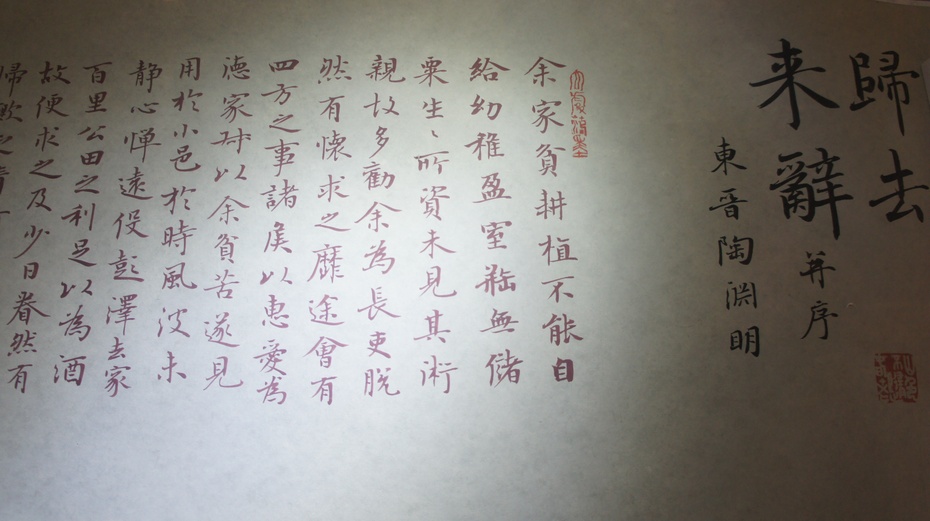 歸去
来辭
并序
東晋陶淵明
余家貧耕植不能自
給幼稚盈室缾無儲
粟生〻所資未見其術
親故多勸余為長吏脱
然有懷求之靡途會有
四方之事諸侯以惠愛為
德家叔以余貧苦遂見
用於小邑於時風波未
静心惮遠役彭澤去家
百里公田之利足以為酒
故便求之及少日眷然有
歸歟之情